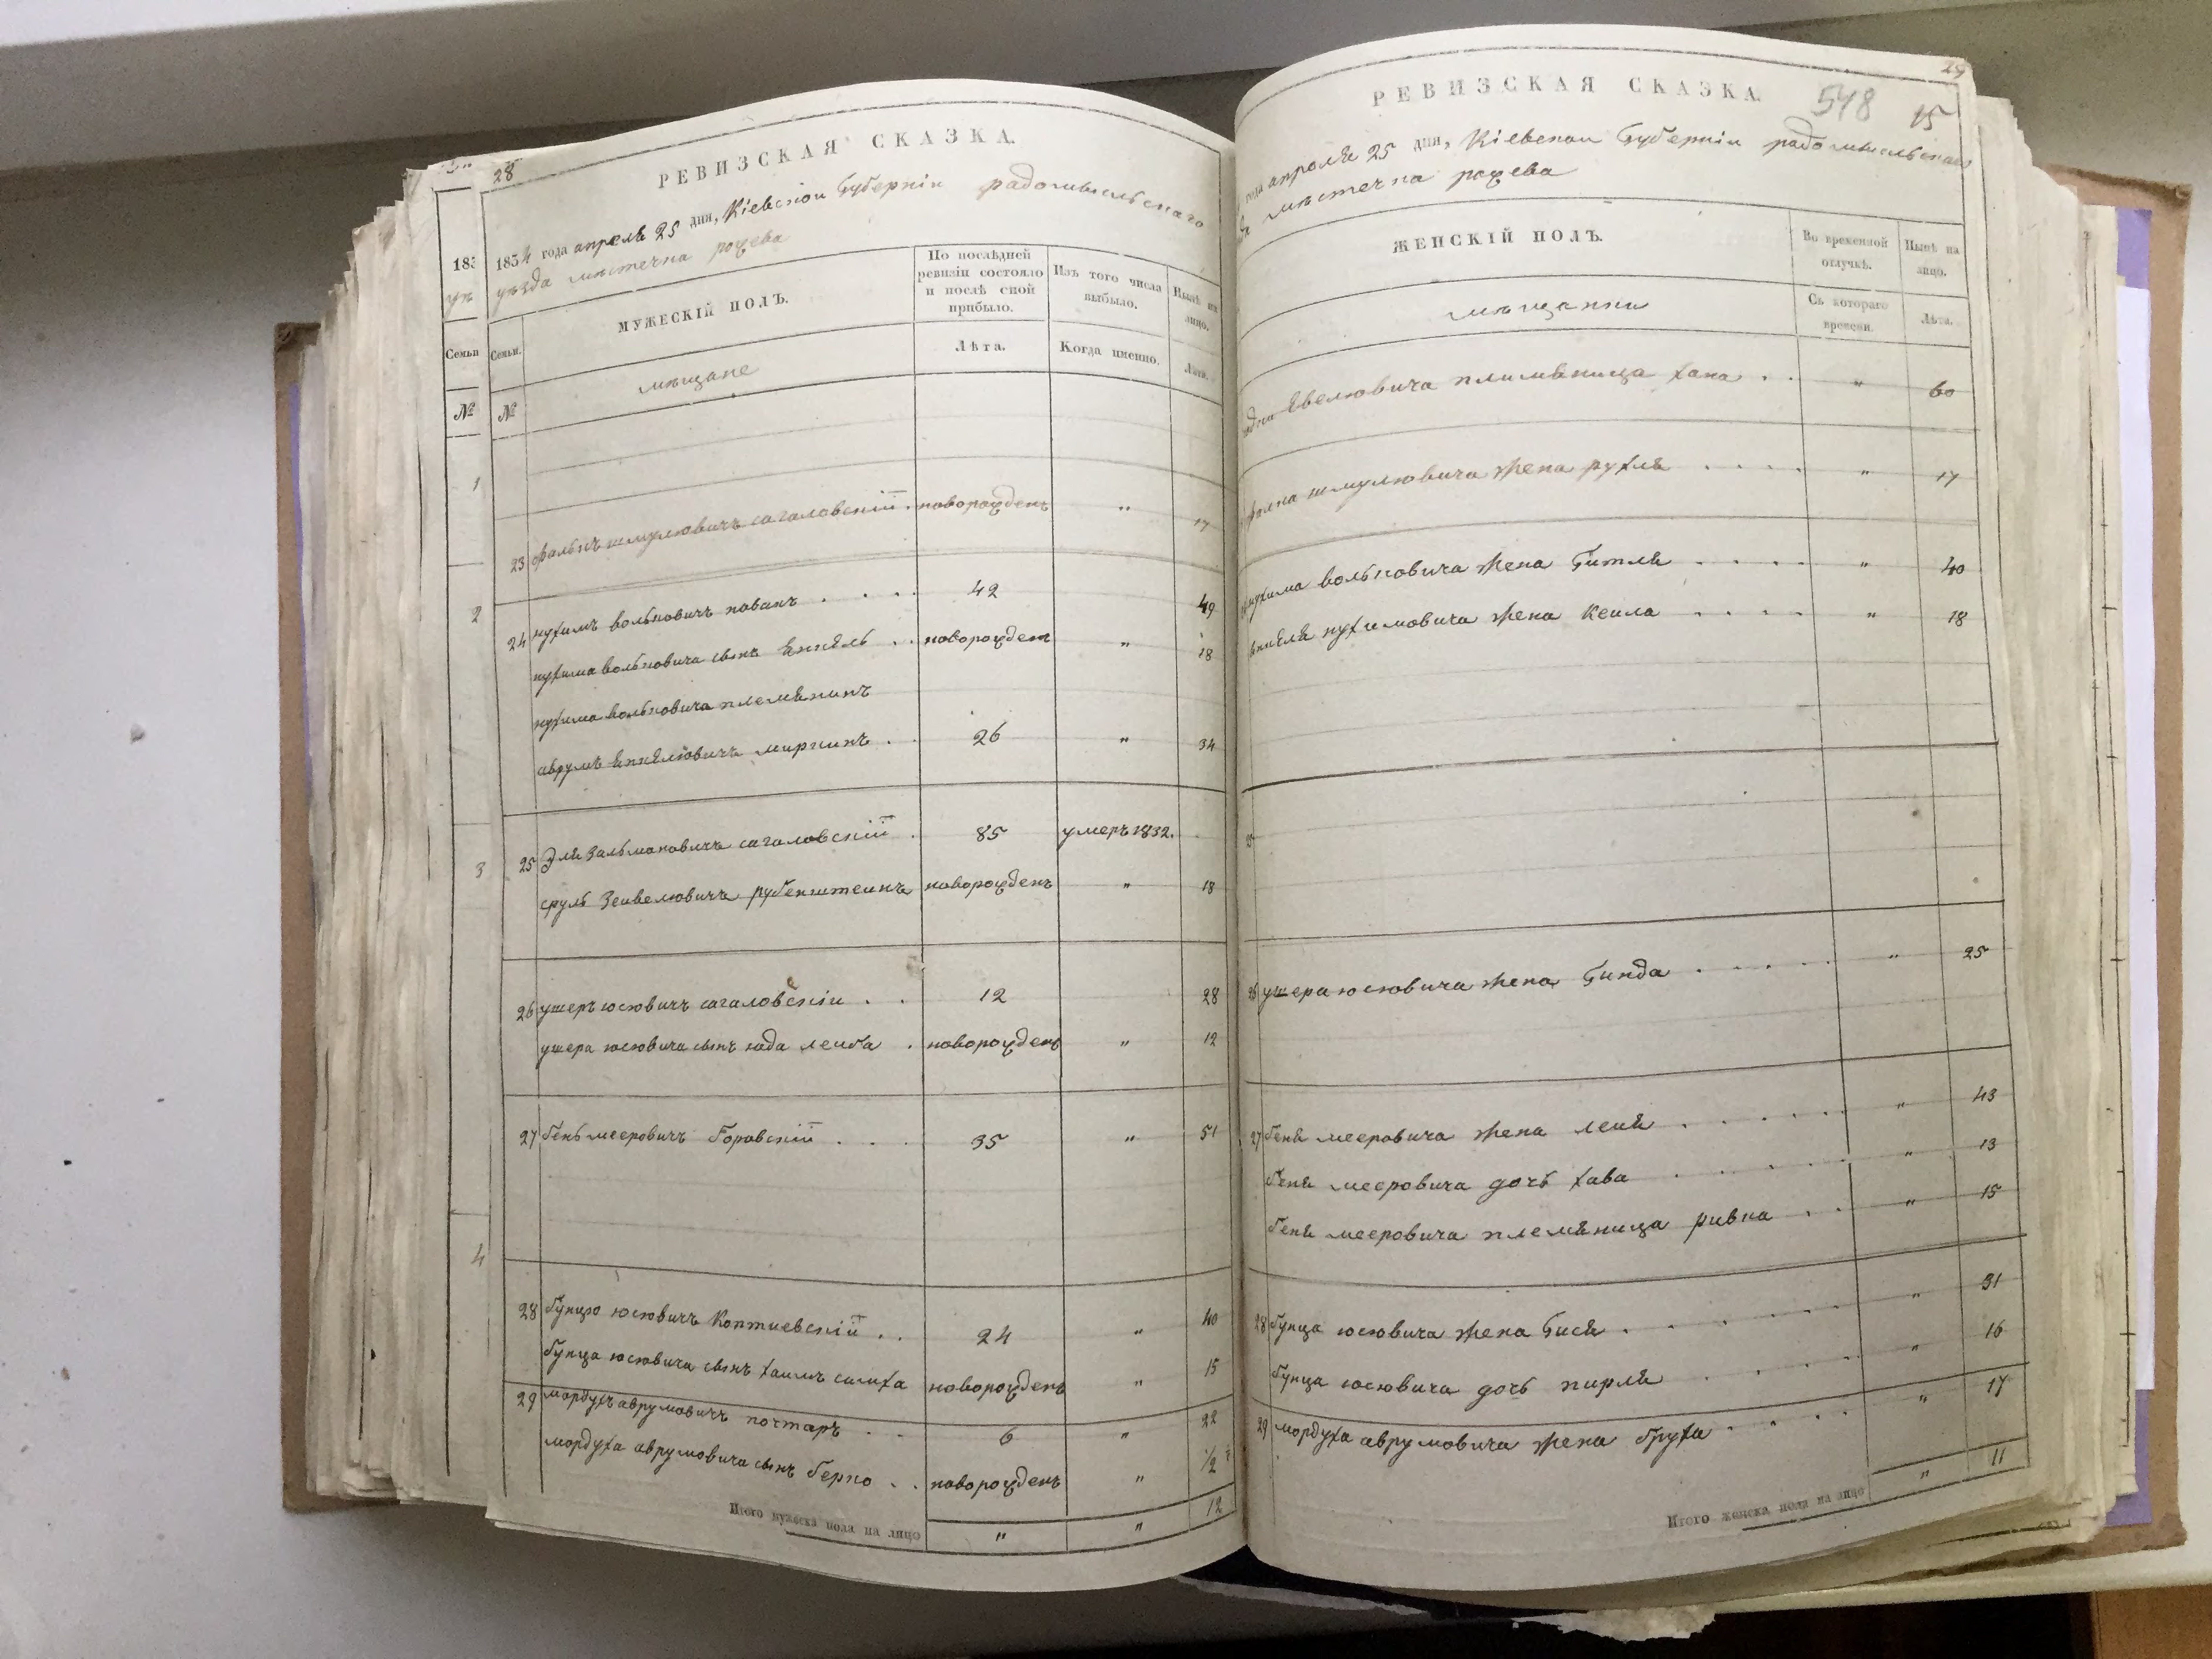 28
РЕВИЗСКАЯ СКАЗКА.
1834 года апреля 25 дня, Кіевской Губерніи радомысльскаго
уѣзда мѣстечка рожева
Семьи.
МУЖЕСКІЙ ПОЛЪ.
По послѣдней ревизіи состояло и послѣ оной прибыло.
Изъ того числа выбыло.
Нынѣ на лицо.
№
мѣщане
Лѣта.
Когда именно.
Лѣта.
23 фалькъ шмулювичъ сагаловскій . новорожденъ " 17
24 нухимъ вольковичъ новакъ . . . . 42 49
нухима вольковича сынъ Янкель . . новорожден " 18
нухима вольковича племяникъ
аврумъ Янкелювичъ миркинъ . 26 " 34
25 Эля Зальмановичъ сагаловскій . 85 умеръ 1832.
сруль Зейвелювичъ рубенштеинъ новорожденъ " 18
26 ушеръ юсювичъ сагаловскіи . . 12 28
ушера юсювича сынъ юда леиба . новорожденъ " 12
27 бень мееровичъ Горовскій . . . 35 " 51
28 бунцю юсювичъ Коптиевскій . . 24 " 40
бунца юсювича сынъ хаимъ симха новорожденъ " 15
29 мордухъ аврумовичъ почтаръ . . 6 " 22
мордуха аврумовича сынъ берко . . новорожденъ " 1/2
Итого мужеска пола на лицо " " 12
29
РЕВИЗСКАЯ СКАЗКА.
548 15
года апреля 25 дня, Кіевскои Губерніи радомысльскаго
мѣстечка рожева
ЖЕНСКІЙ ПОЛЪ.
Во временной отлучкѣ.
Нынѣ на лицо.
мѣщанки
Съ котораго времени.
Лѣта.
Евелювича племяница хана . . " 60
фалка шмулювича жена рухля . . . . " 17
нухима вольковича жена Гитля . . . . " 40
янкеля нухимовича жена Кеила . . . . " 18
26 ушера юсювича жена Гинда . . . . . " 25
27 беня мееровича жена лея . . . . . " 43
беня мееровича дочь хава . . . . . " 13
беня мееровича племяница ривка . . " 15
28 бунца юсювича жена Гися . . . . . " 31
бунца юсювича дочь пирля . . . . " 16
29 мордуха аврумовича жена бруха . . . . . " 17
Итого женска пола на лицо " 11
183
Семьи
№
1
2
3
4